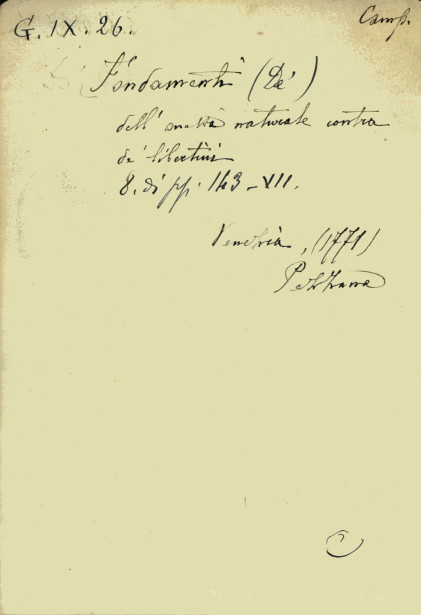 G. IX. 26.
Camp.
Fondamenti (De')
dell' onestà naturale contra
de' libertini
8. di pp. 143-XII.
Venezia, (1771)
Pezzana